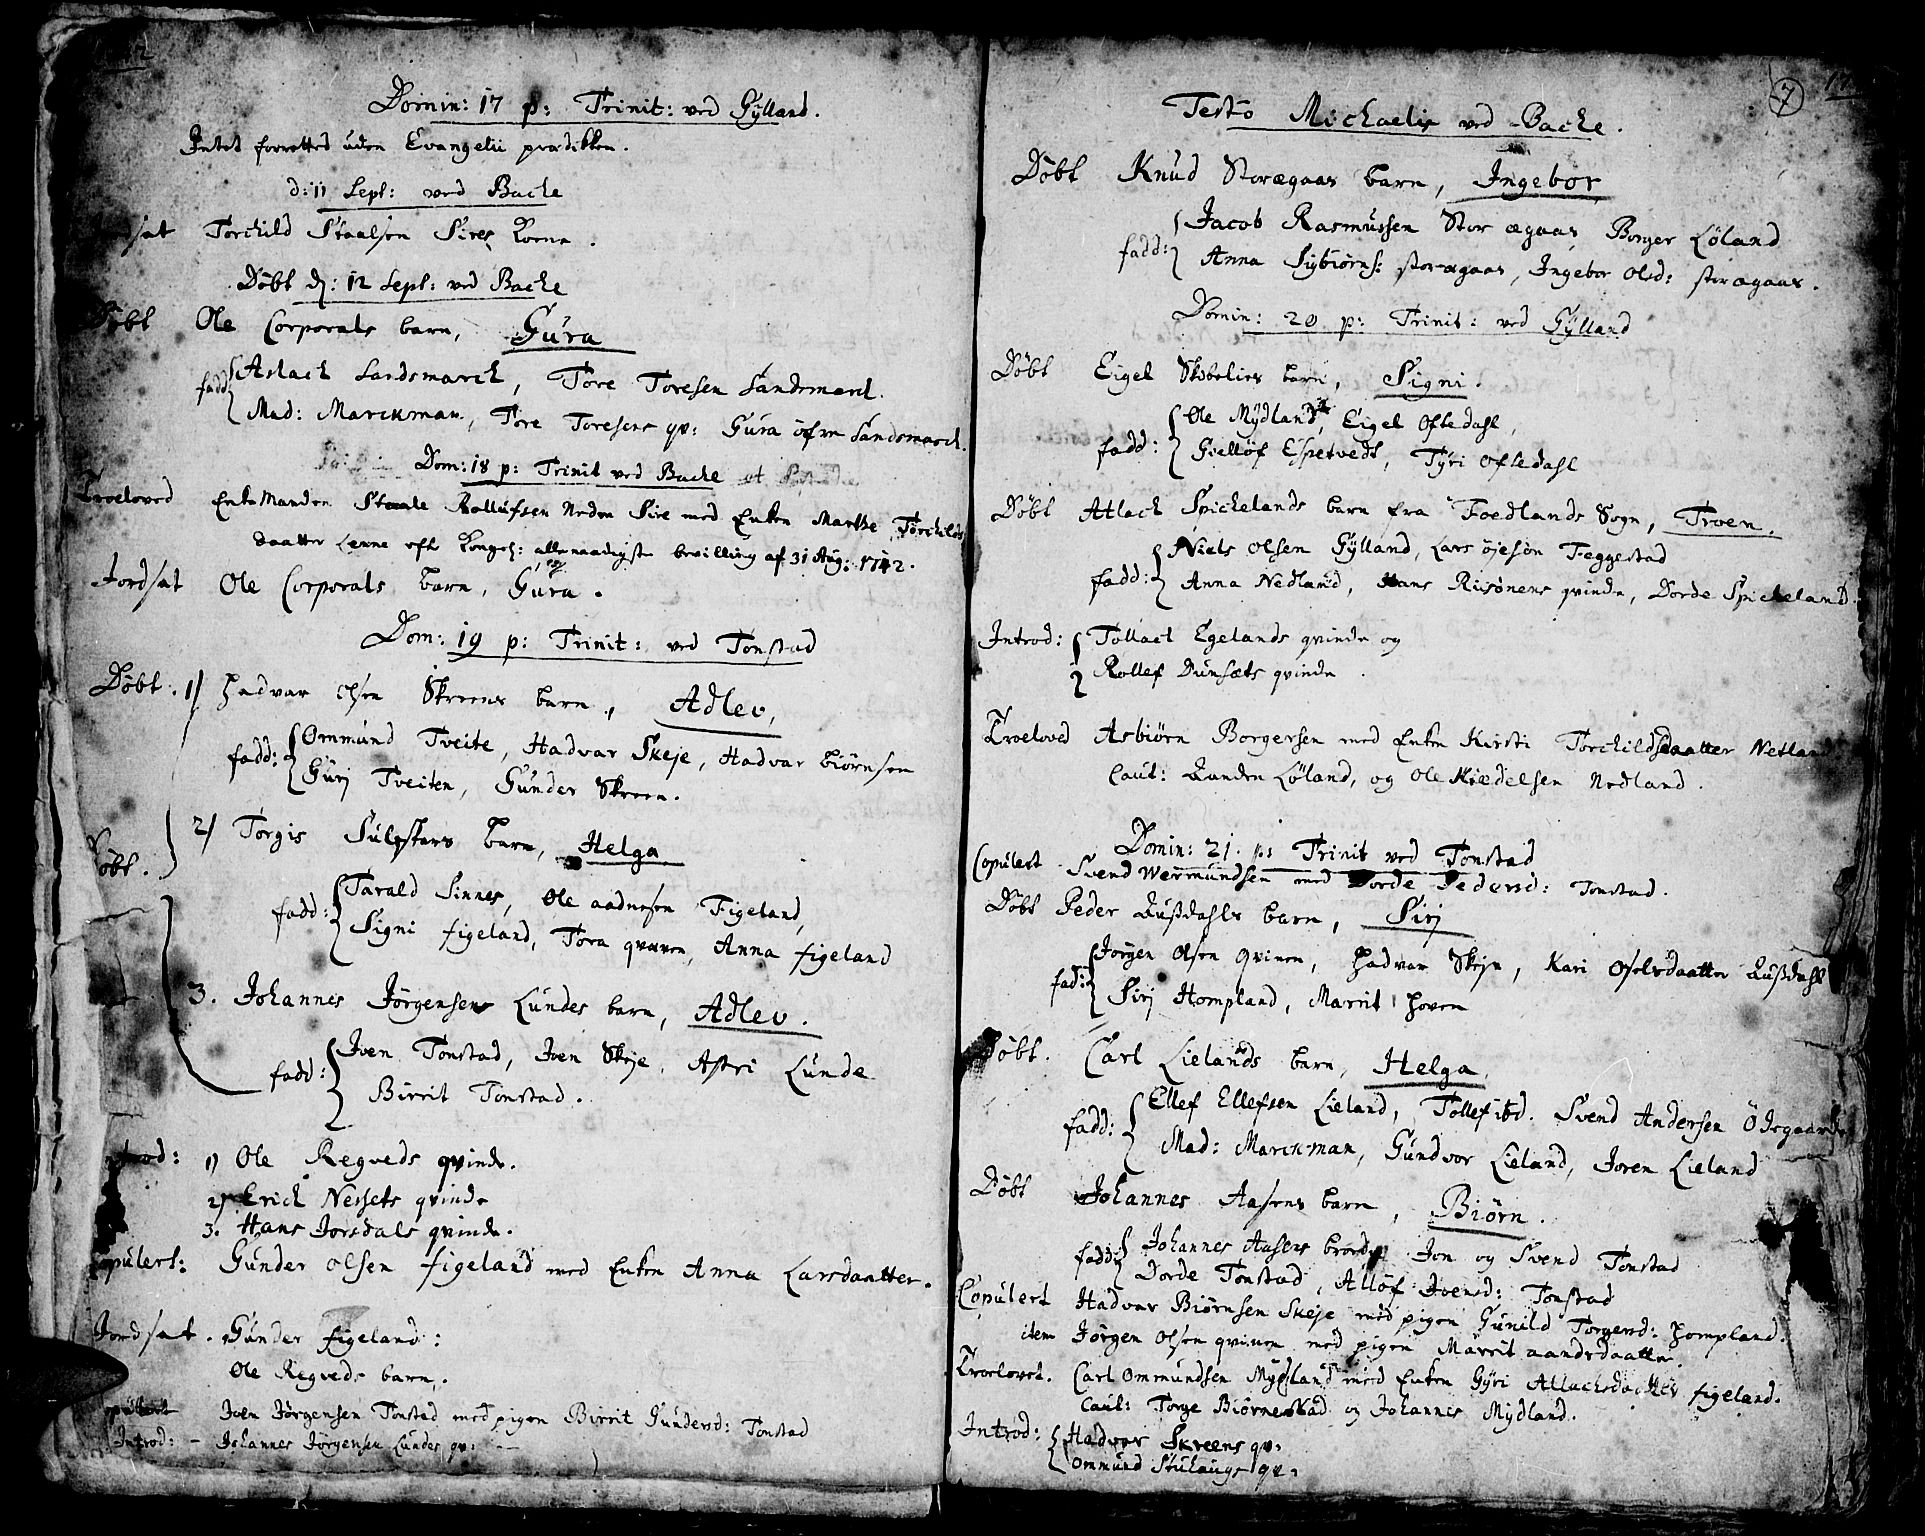 Domin: 17 p: Trinit: ved Gÿlland.
Intet forretted uden Evangelii prædikken.
d: 11 Sept: ved Backe
Torchild Staalsen Sires Kone.
Døbt d: 12 Sept: ved Backe
Døbt Ole Corporals barn, Gura
fadd: Aslach Landsmarck, Tore Toresen Landsmarck.
Mad: Marckman, Tore Toresens qv: Gura öfre Landsmarck.
Dom: 18 p: Trinit ved Backe
Troeloved Enke Manden Staale Rollufsen Neden Sire med Enken Marthe Torchilds
daatter Lenne eft Kongel: allernaadigste bevilling af 31 Aug: 1742.
Jordsat Ole Corporals barn, Gura.
Dom: 19 p: Trinit: ved Tonstad
Døbt. 1) Hadvar Olsen Skreens barn, Adlev,
fadd: Ommund Tveite, Hadvar Skeje, Hadvar Biørnsen
Gurj Tveiten, Gunder Skreen.
Døbt. 2) Torgis Sulpstars barn, Helga
fadd: Tarald Sinnes, Ole aadnesen Figeland,
Signi figeland, Tora qvinen, Anna figeland
3. Johannes Jörgensens Lundes barn, Adlev.
fadd: Joen Tonstad, Joen Skeje, Astri Lunde
Birrit Tonstad.
Introd: 1) Ole Regveds qvinde.
2) Erich Nessets qvinde
3. Hans Josdals qvinde.
Copulert: Gunder Olsen figeland med Enken Anna Larsdaatter.
Jordsat. Gunder figeland:
Ole Regveds barn.
Copulert Joen Jörgensen Tonstad med pigen Birrit Gundersd: Tonstad
Introd: - Johannes Jörgensen Lundes qv:
7
Festo Michaelis ved Backe.
Døbt Knud Storægaas barn, Ingebor
fadd: Jacob Rasmussen Storægaas, Borger Løland
Anna Sybiørns: storægaas, Ingebor Olsd: storægaas.
Domin: 20 p: Trinit: ved Gÿlland
Døbt Eigel Skibelies barn, Signi.
fadd: Ole Mÿdland, Eigel Oftedahl,
Gielløf Espetvedt, Tÿri Oftedahl
Døbt Atlach Spickelands barn fra Foedlands Sogn, Troen.
fadd: Niels Olsen Gÿlland, Lars öjesön Feggestad
Anna Nedland, Hans Risönens qvinde, Dorde Spickeland.
Introd: Tollach Egelands qvinde og
Rollef Dunsæts qvinde.
Troeloved Asbiörn Borgersen med Enken Kirsti Torchildsdaatter Netland
Caut: Anden Löland, og Ole Kiædelsen Nedland.
Domin: 21. p: Trinit ved Tonstad
Copulert Svend Wermundsen med Dorde Pedersd: Tonstad.
Døbt Peder Rusdahls barn, Sirj
fad: Jörgen Olsen qvinen, Hadvar Skeje, Kari Oselsdaatter Rusdahl
Sirj Hompland, Marrit Hoven
Døbt. Carl Lielands barn, Helga
fadd: Ellef Ellefsen Lieland, Tollef ibd. Svend Andersen Ödegaarden
Mad: Marckman, Gundvor Lieland, Joren Lieland
Døbt Johannes Aasens barn, Biörn.
fadd: Johannes Aasens broder, Jon og Svend Tonstad
Dorde Tonstad, Allöf Joensd: Tonstad
Copulert Hadvar Biörnsen Skeje med pigen Gunild Torgersd: Hompland.
item Jörgen Olsen qvinen med pigen Marrit aandsdaatter.
Troelovet. Carl Ommundsen Mÿdland med Enken Gÿri Atlachsdaatter figeland.
Caut: Torge Biörnestad og Johannes Mÿdland.
Introd: Hadvor Skreens qv:
Ommund Stuhaugs qv: